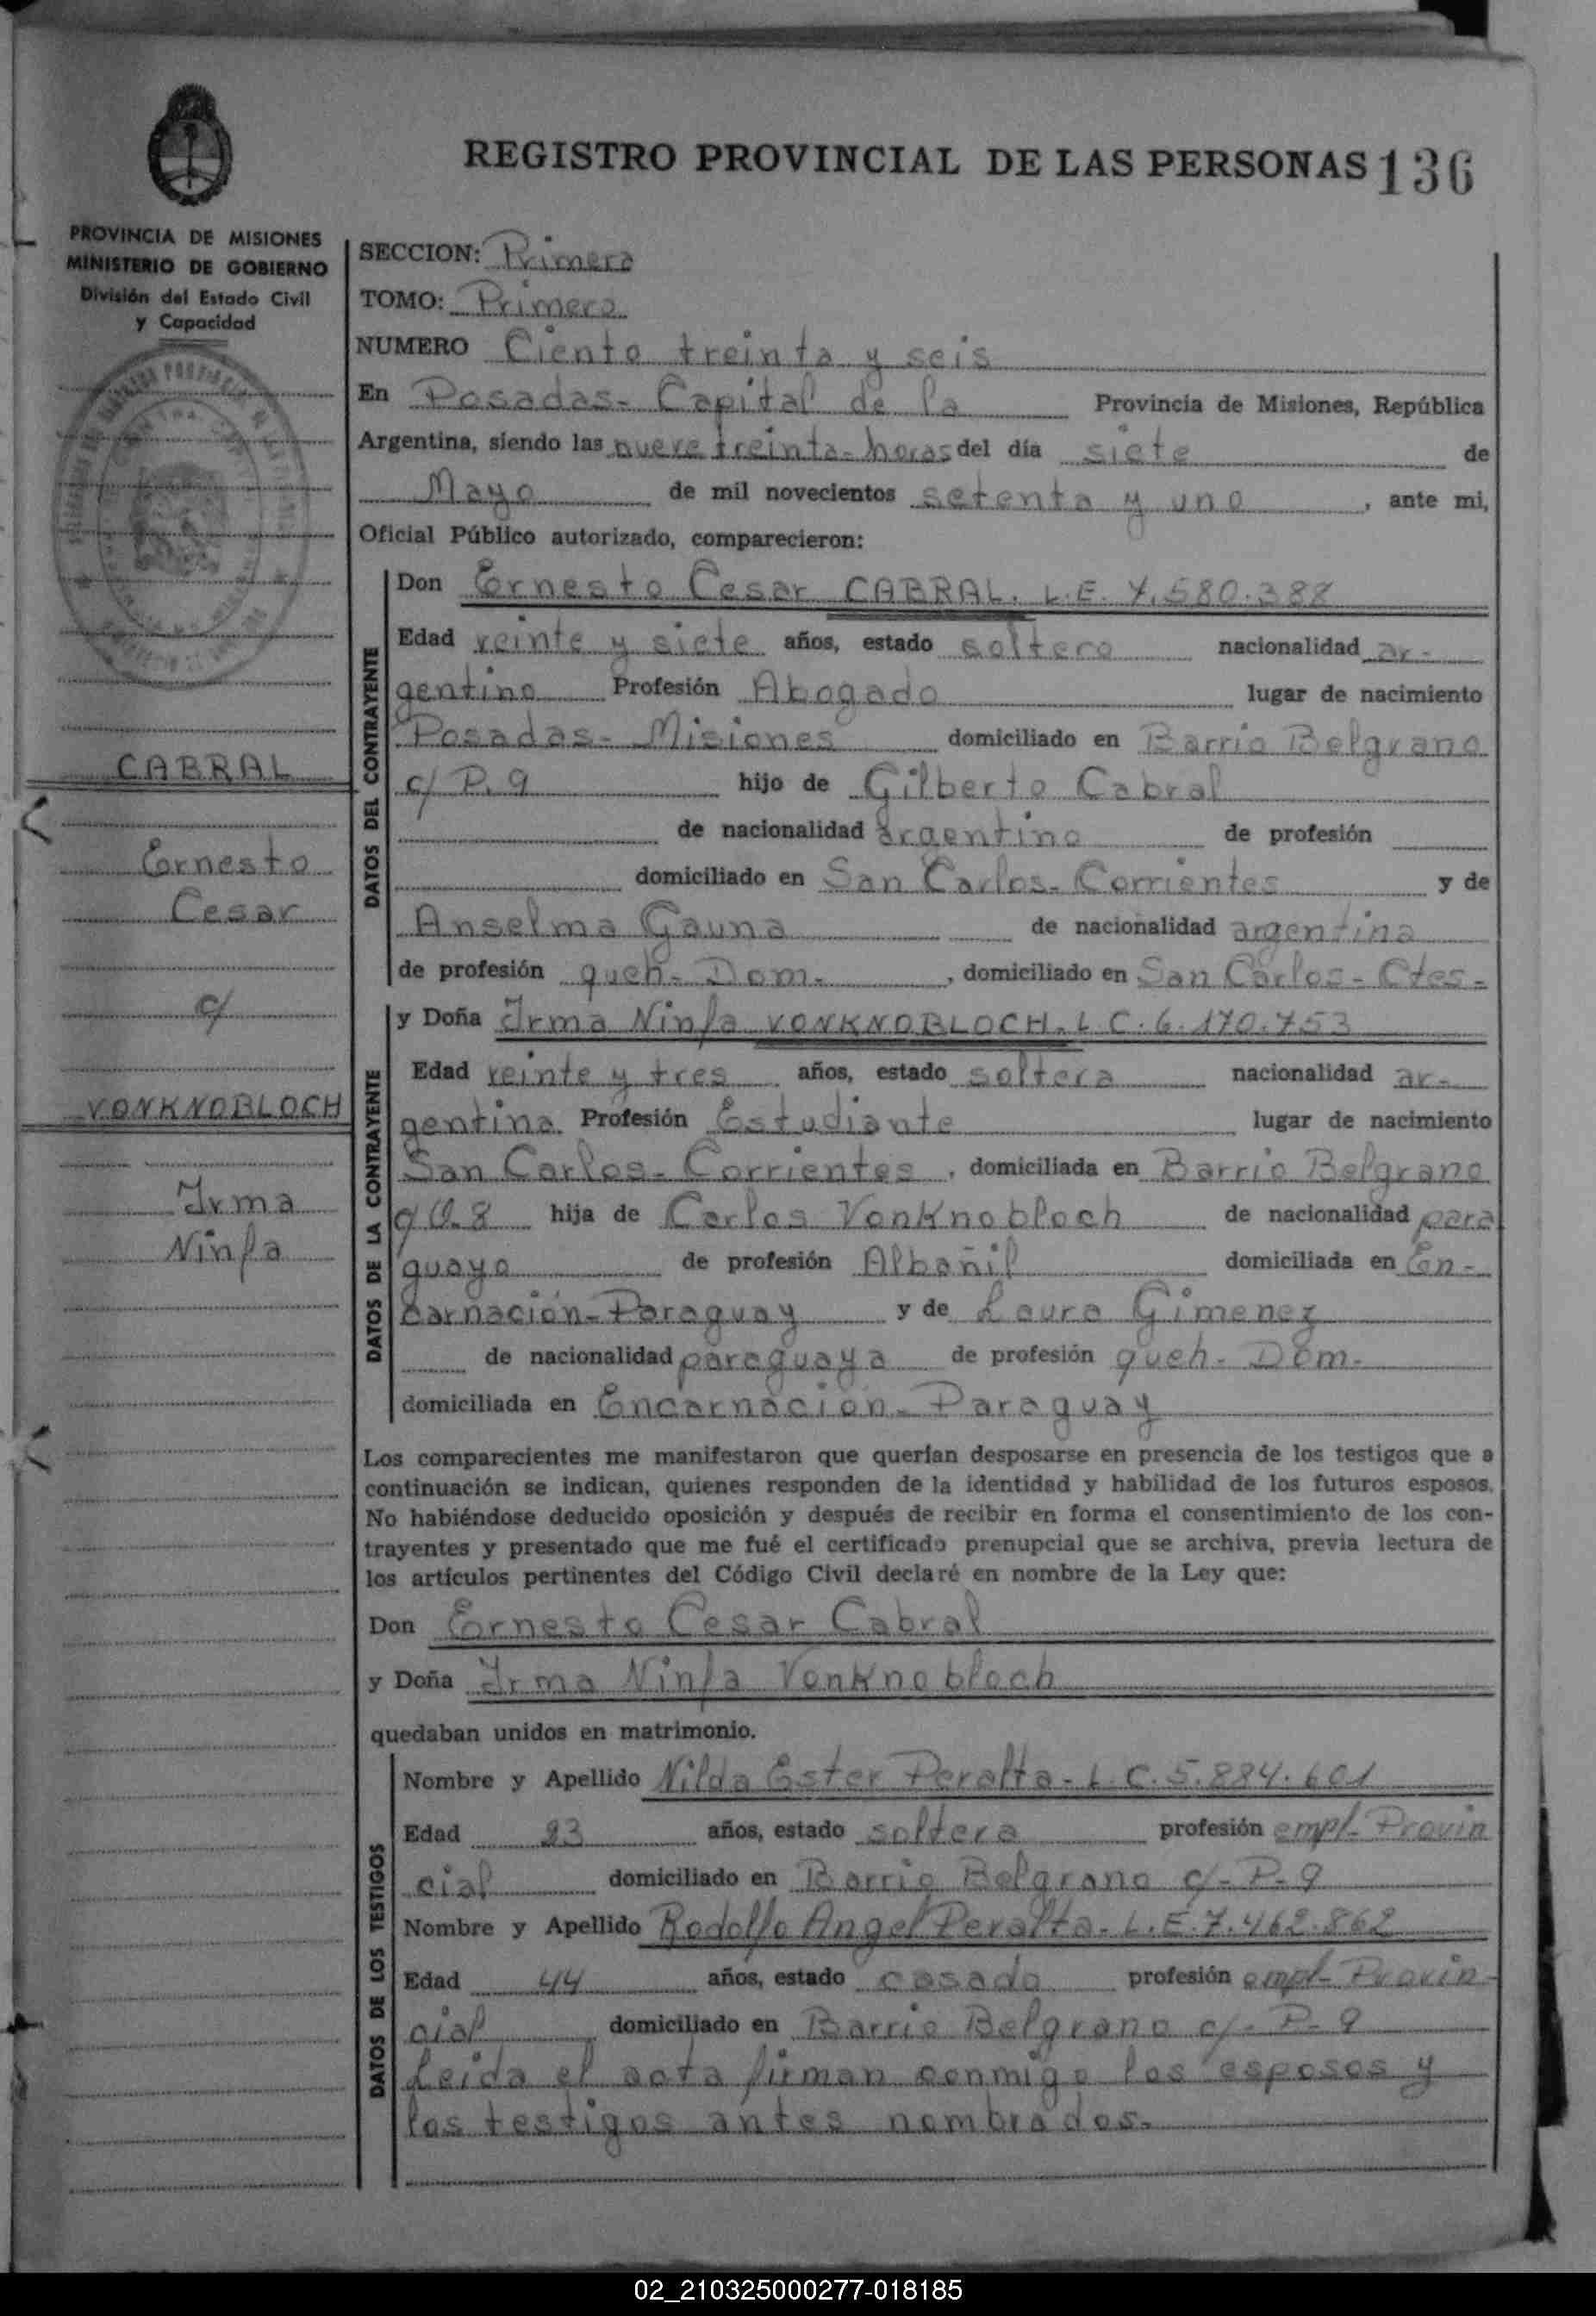 REGISTRO PROVINCIAL DE LAS PERSONAS 136
PROVINCIA DE MISIONES
MINISTERIO DE GOBIERNO
División del Estado Civil
y Capacidad
CABRAL
Ernesto
Cesar
c/
VONKNOBLOCH
Irma
Ninfa
SECCION: Primera
TOMO: Primero
NUMERO Ciento treinta y seis
En Posadas- Capital de la Provincia de Misiones, República
Argentina, siendo las nueve treinta- horas del día siete de
Mayo de mil novecientos setenta y uno, ante mi,
Oficial Público autorizado, comparecieron:
DATOS DEL CONTRAYENTE
Don Ernesto Cesar CABRAL. L.E. 7.580.388
Edad veinte y siete años, estado soltero nacionalidad ar-
gentino Profesión Abogado lugar de nacimiento
Posadas- Misiones domiciliado en Barrio Belgrano
c/ P. 9 hijo de Gilberto Cabral
de nacionalidad argentino de profesión
domiciliado en San Carlos- Corrientes y de
Anselma Gauna de nacionalidad argentina
de profesión queh- Dom-, domiciliado en San Carlos- Ctes-
DATOS DE LA CONTRAYENTE
y Doña Irma Ninfa VONKNOBLOCH. L.C. 6.170.753
Edad veinte y tres años, estado soltera nacionalidad ar-
gentina Profesión Estudiante lugar de nacimiento
San Carlos- Corrientes, domiciliada en Barrio Belgrano
8 hija de Carlos VonKnobloch de nacionalidad para
guayo de profesión Albañil domiciliada en En-
carnación- Paraguay y de Laura Gimenez
de nacionalidad paraguaya de profesión queh- Dom-
domiciliada en Encarnación- Paraguay
Los comparecientes me manifestaron que querían desposarse en presencia de los testigos que a
continuación se indican, quienes responden de la identidad y habilidad de los futuros esposos.
No habiéndose deducido oposición y después de recibir en forma el consentimiento de los con-
trayentes y presentado que me fué el certificado prenupcial que se archiva, previa lectura de
los artículos pertinentes del Código Civil declaré en nombre de la Ley que:
Don Ernesto Cesar Cabral
y Doña Irma Ninfa VonKnobloch
quedaban unidos en matrimonio.
DATOS DE LOS TESTIGOS
Nombre y Apellido Nilda Ester Peralta- L.C. 5.884.601
Edad 23 años, estado soltera profesión empl- Provin
cial domiciliado en Barrio Belgrano c/- P- 9
Nombre y Apellido Rodolfo Angel Peralta- L.E. 7.462.862
Edad 44 años, estado casado profesión empl- Provin-
cial domiciliado en Barrio Belgrano c/- P- 9
Leida el acta firman conmigo los esposos y
los testigos antes nombrados-
02_210325000277-018185